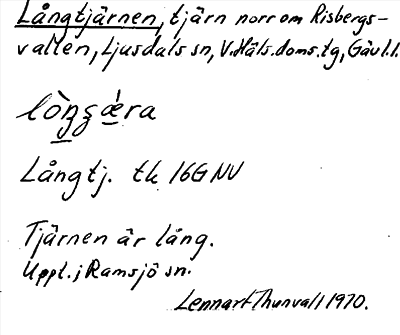 Långtjärnen, tjärn norr om Risbergs-
vallen, Ljusdals sn, V. Häls. doms. tg, Gävl. l.
Långtj. tk 16G NV
Tjärnen är lång.
Uppt. i Ramsjö sn.
Lennart Thunvall 1970.